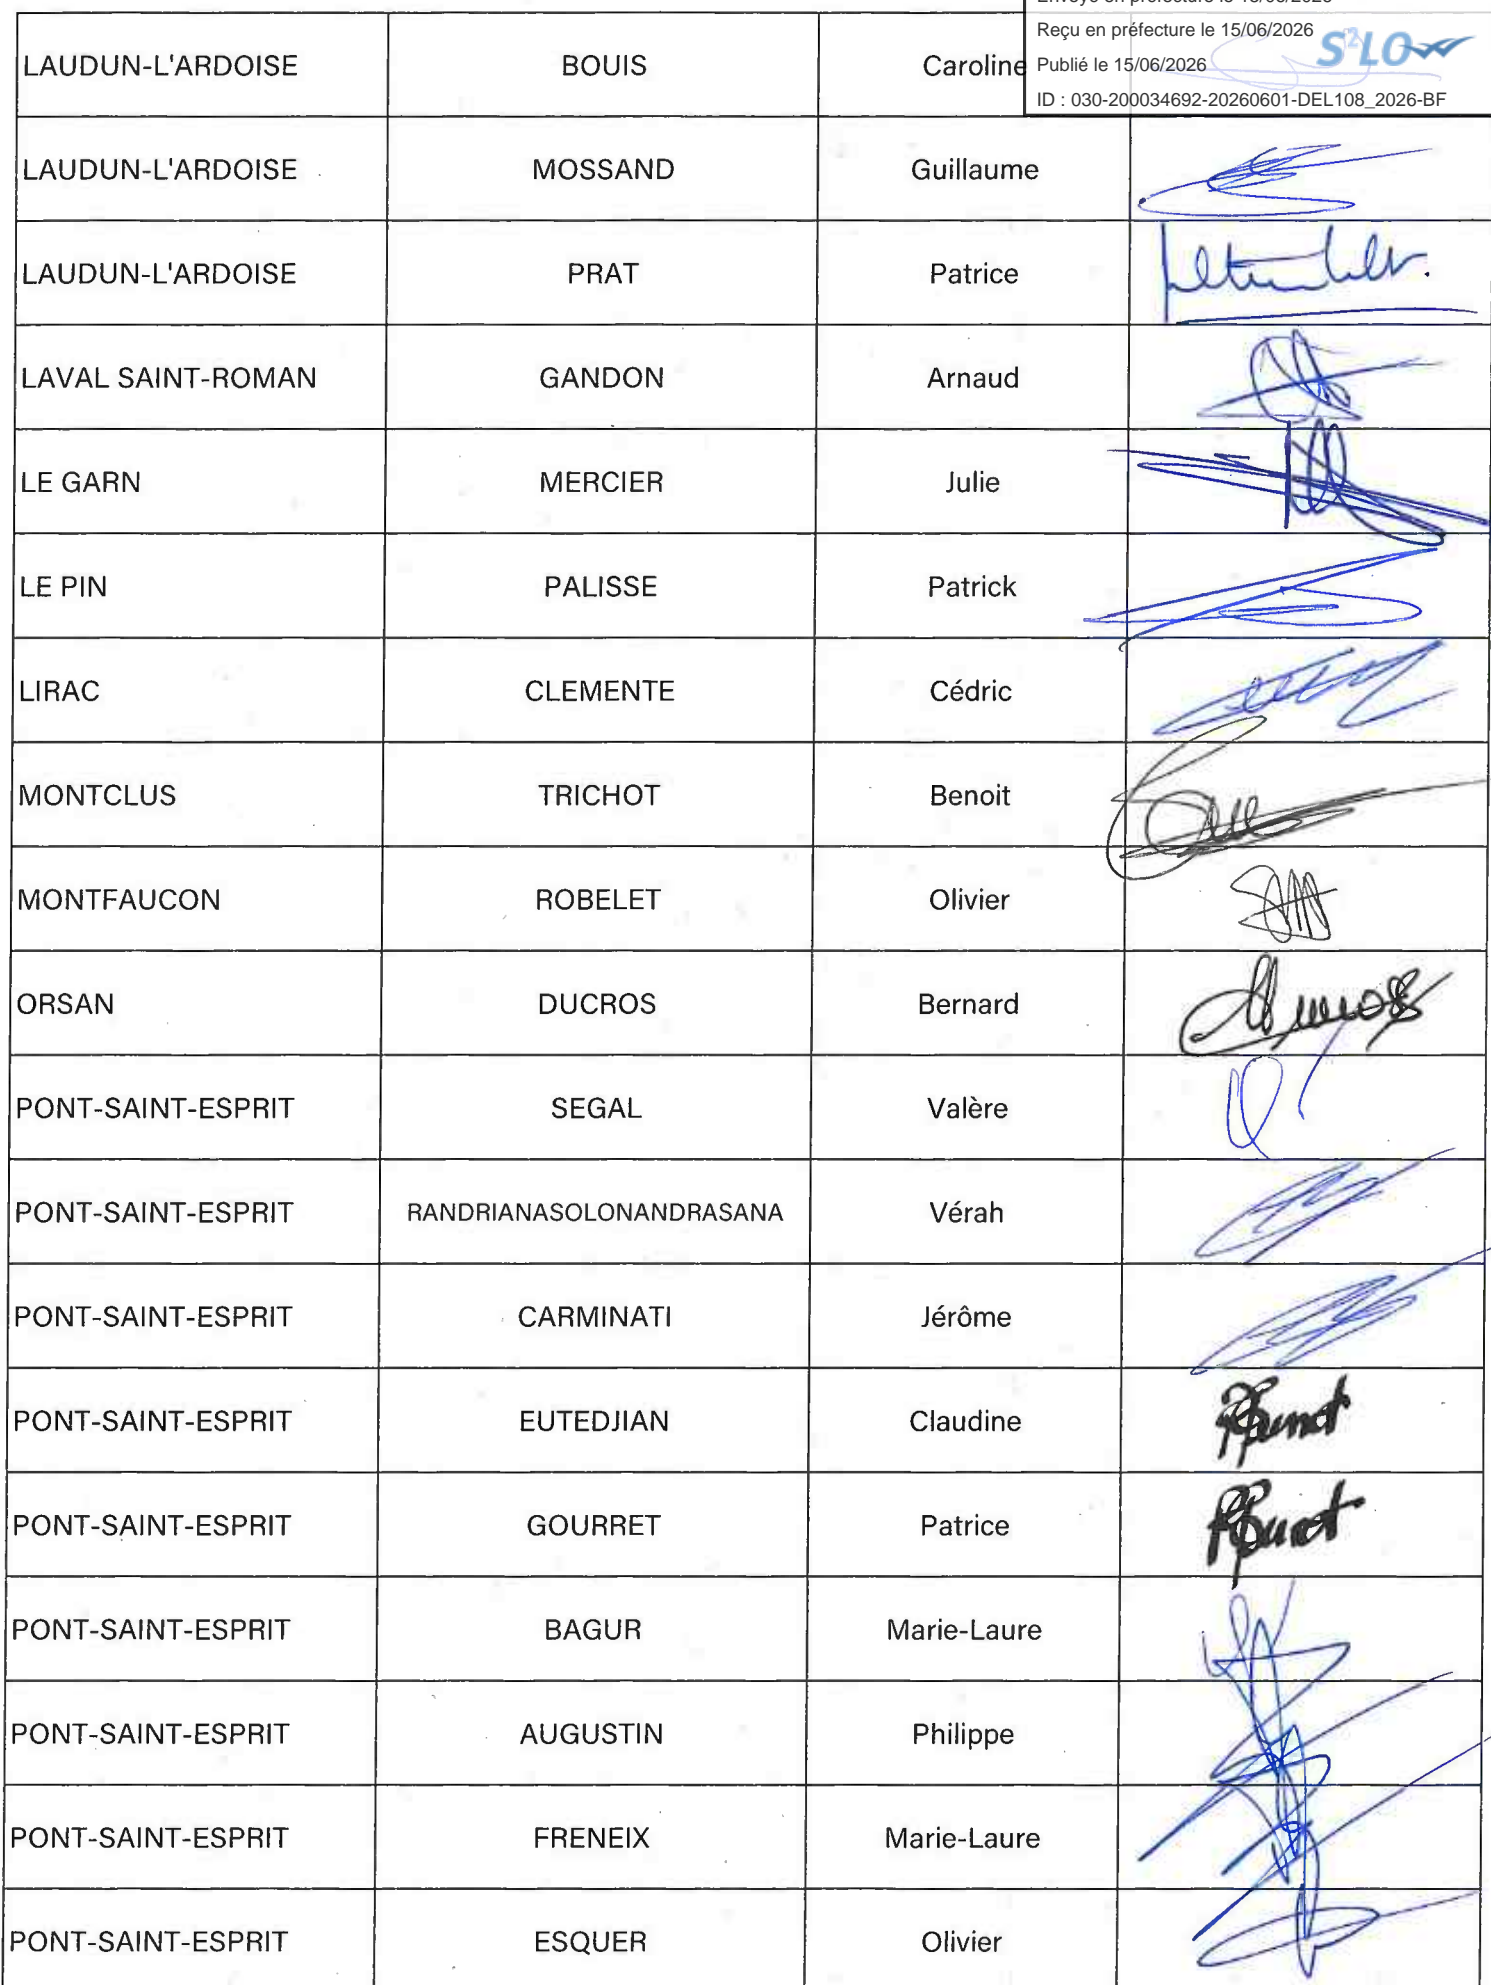 Reçu en préfecture le 15/06/2026
Publié le 15/06/2026
S²LO
ID : 030-200034692-20260601-DEL108_2026-BF
LAUDUN-L'ARDOISE BOUIS Caroline
LAUDUN-L'ARDOISE MOSSAND Guillaume
LAUDUN-L'ARDOISE PRAT Patrice
LAVAL SAINT-ROMAN GANDON Arnaud
LE GARN MERCIER Julie
LE PIN PALISSE Patrick
LIRAC CLEMENTE Cédric
MONTCLUS TRICHOT Benoit
MONTFAUCON ROBELET Olivier
ORSAN DUCROS Bernard
PONT-SAINT-ESPRIT SEGAL Valère
PONT-SAINT-ESPRIT RANDRIANASOLONANDRASANA Vérah
PONT-SAINT-ESPRIT CARMINATI Jérôme
PONT-SAINT-ESPRIT EUTEDJIAN Claudine
PONT-SAINT-ESPRIT GOURRET Patrice
PONT-SAINT-ESPRIT BAGUR Marie-Laure
PONT-SAINT-ESPRIT AUGUSTIN Philippe
PONT-SAINT-ESPRIT FRENEIX Marie-Laure
PONT-SAINT-ESPRIT ESQUER Olivier